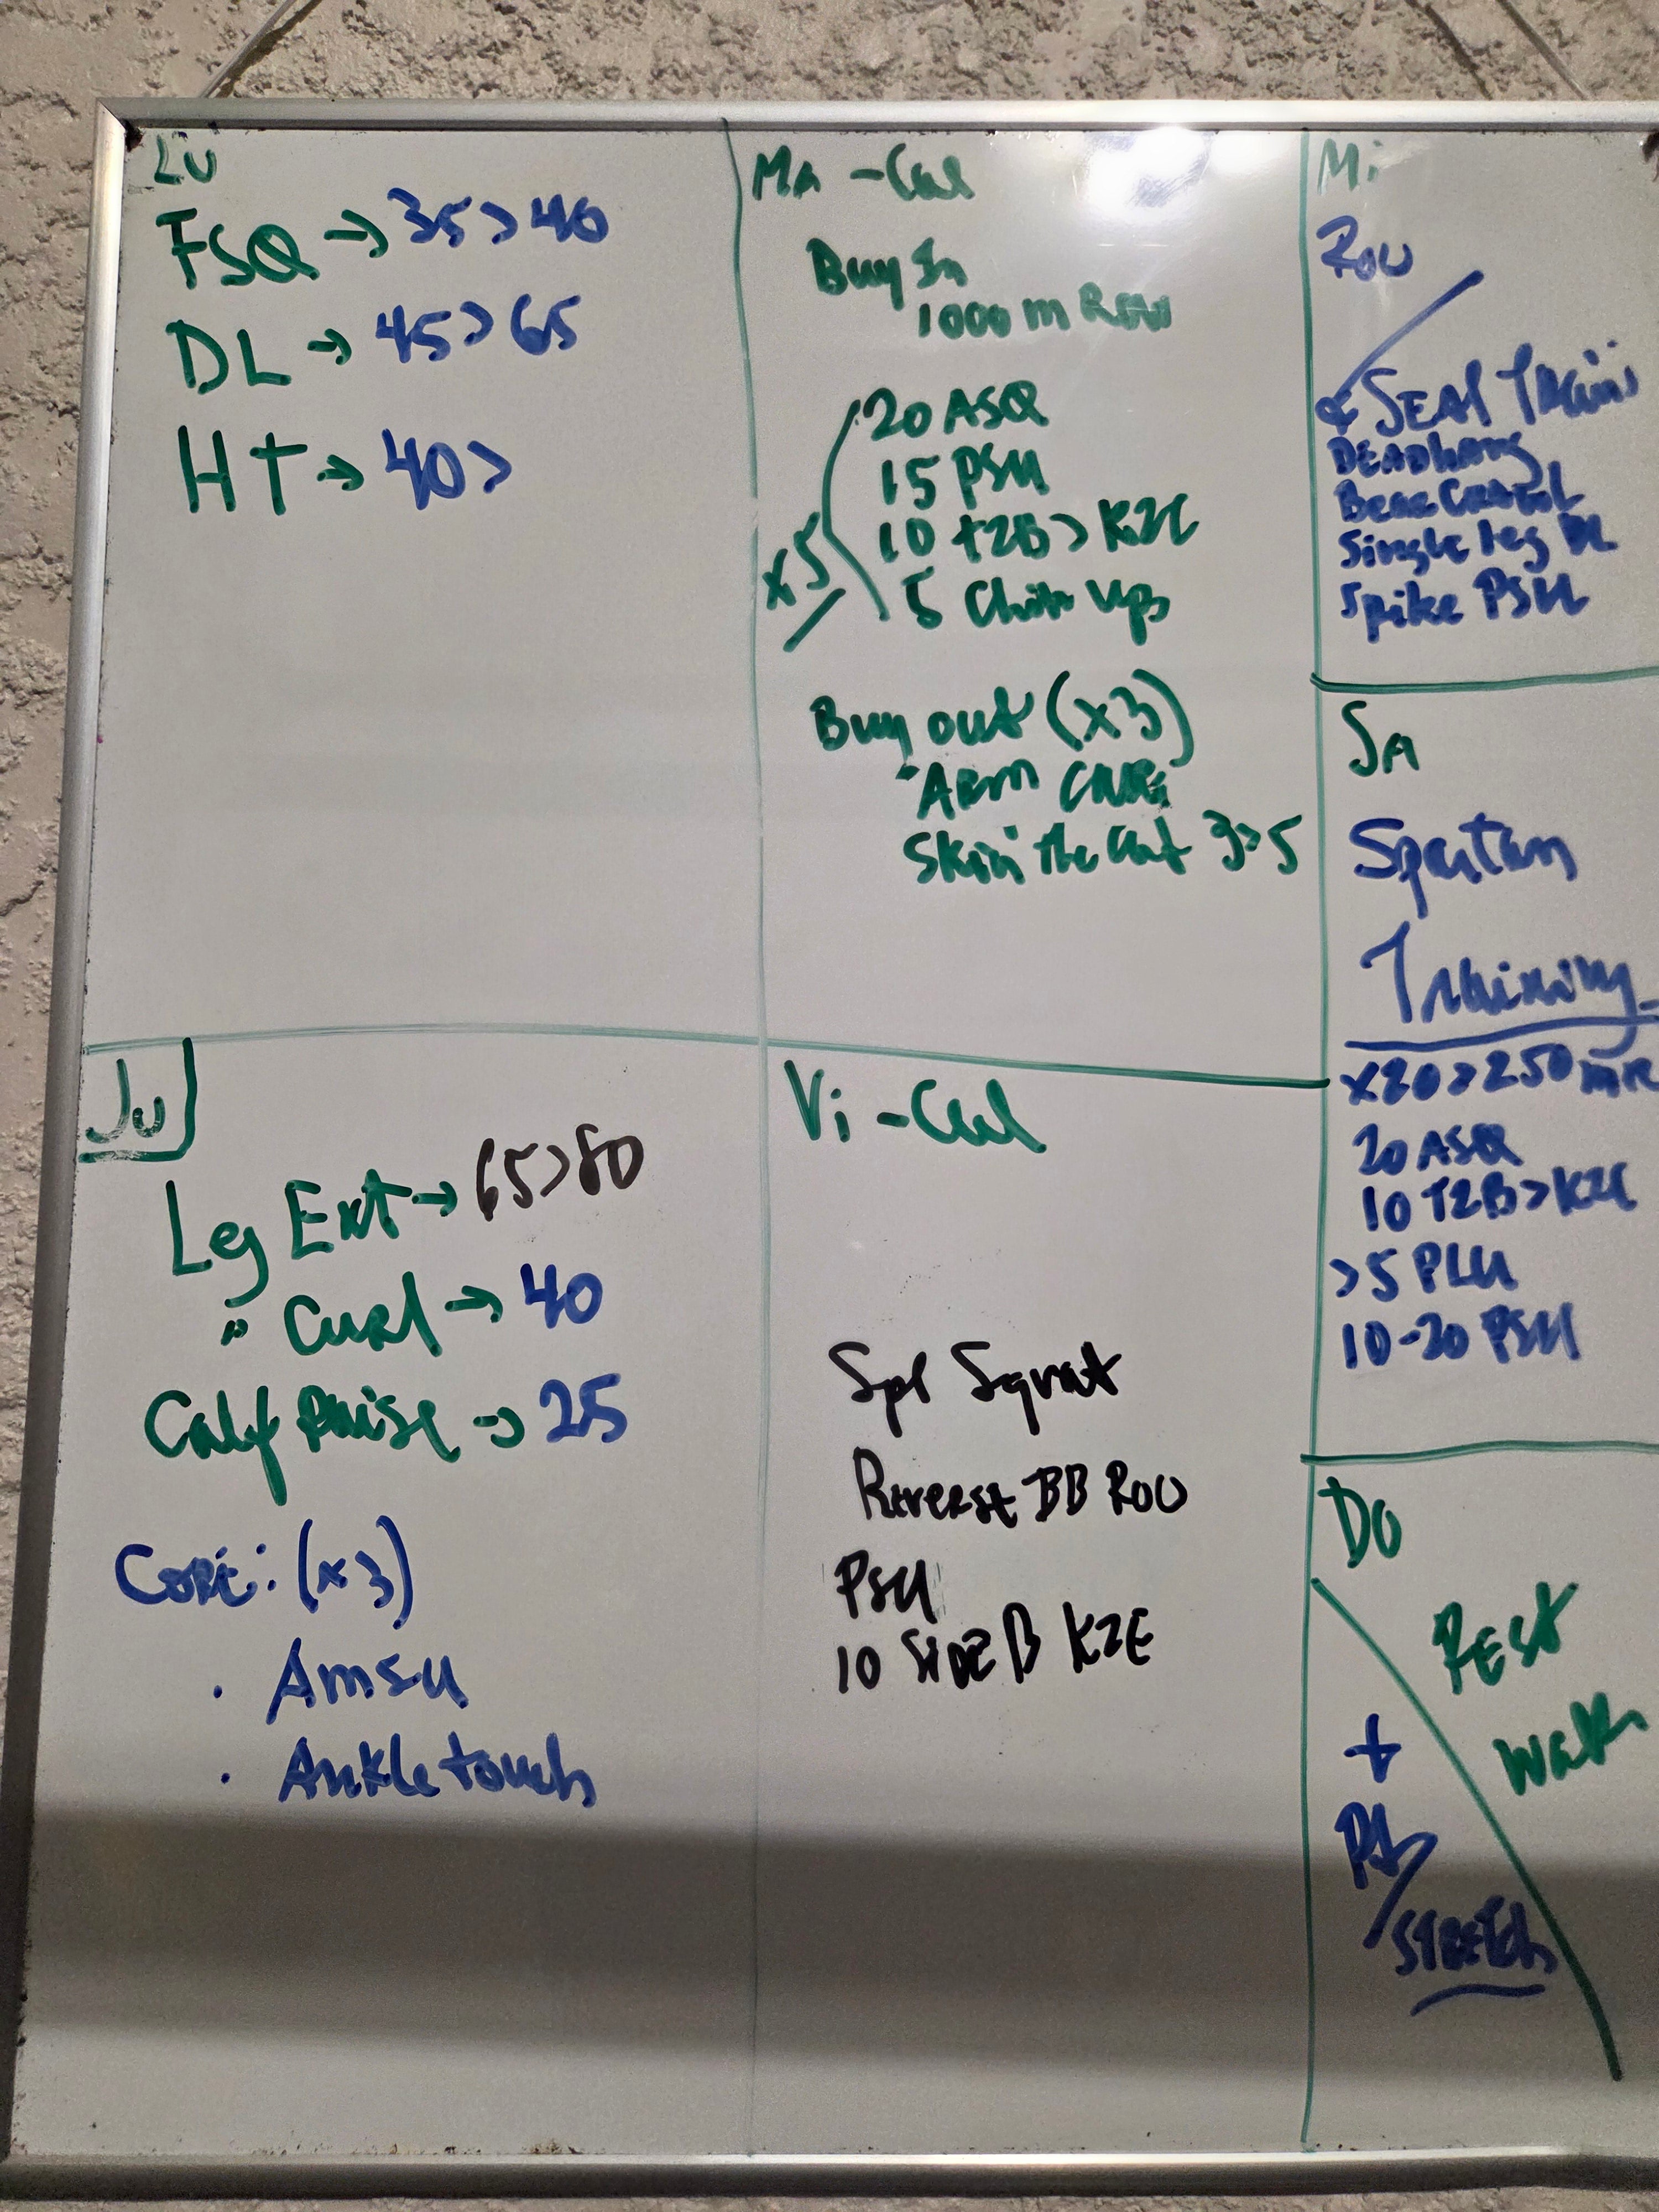 Lu
FSQ → 35 > 40
DL → 45 > 65
HT → 40 >
Ma - Cal
Buy In
1000 m Row
20 ASQ
15 PSU
10 T2B > K2E
5 Chin ups
x5
Buy out (x3)
- Arm
Skin the cat 3>5
Mi
Row
& SEAL
DEADhang
Bear Crawl
Single leg DL
Spike PSU
SA
Spartan
Training
x20 > 250 m R
20 ASQ
10 T2B > K2E
>5 PLU
10-20 PSU
Ju
Leg Ext → 65>80
" Curl → 40
Calf Raise → 25
Core: (x3)
· Amsu
· Ankle touch
Vi - Cal
Spl Squat
Reverse BB Row
PSU
10 SIDE B K2E
DO
Rest
Walk
+
Stretch